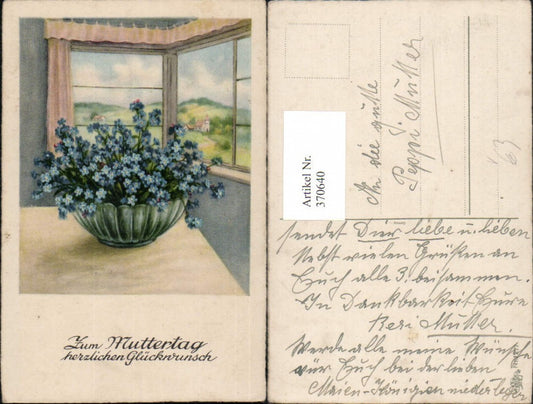 Zum Muttertag
herzlichen Glückwunsch
Artikel Nr.
370640
An die gute
Peppi Mutter
'63
sendet Dier liebe u. lieben
Nebst vielen Grüßen an
Euch alle 3. beisammen.
In Dankbarkeit Eure
Resi Mutter.
Werde alle meine Wünsche
für Euch bei der lieben
Maien-Königien niederlegen